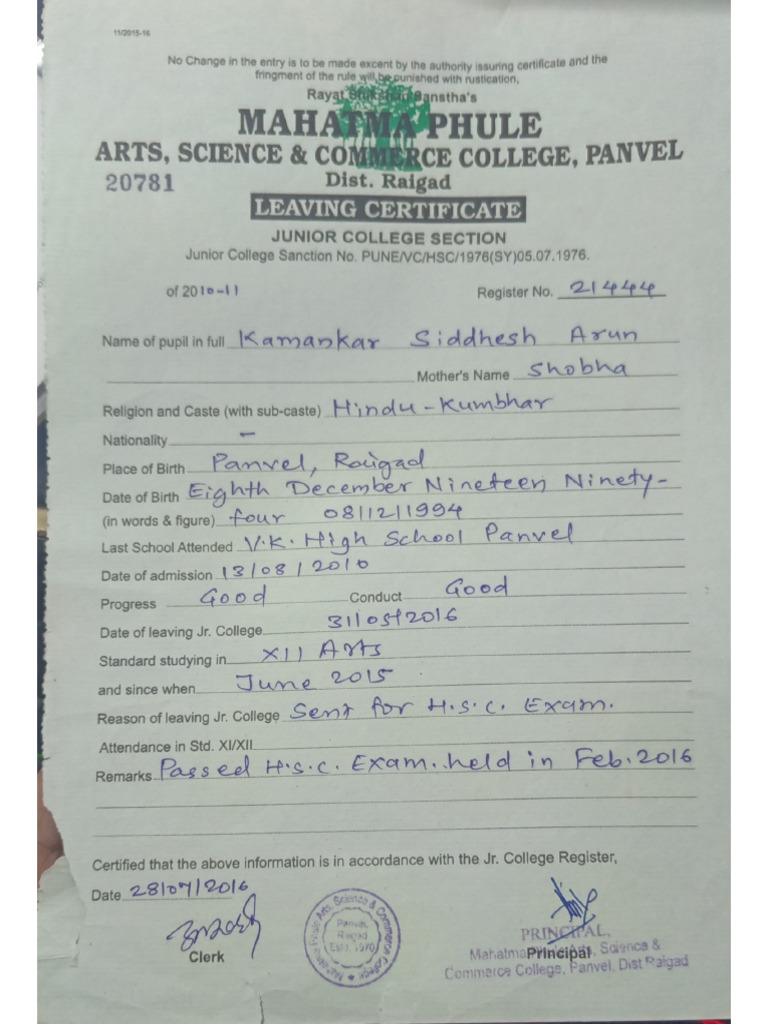 11/2015-16
No Change in the entry is to be made excent by the authority issuring certificate and the
fringment of the rule will be punished with rustication,
Rayat Shikshan Sanstha's
MAHATMA PHULE
ARTS, SCIENCE & COMMERCE COLLEGE, PANVEL
20781 Dist. Raigad
LEAVING CERTIFICATE
JUNIOR COLLEGE SECTION
Junior College Sanction No. PUNE/VC/HSC/1976(SY)05.07.1976.
of 2010-11 Register No. 21444
Name of pupil in full Kamankar Siddhesh Arun
Mother's Name Shobha
Religion and Caste (with sub-caste) Hindu-Kumbhar
Nationality -
Place of Birth Panvel, Raigad
Date of Birth Eighth December Nineteen Ninety-
(in words & figure) four 08/12/1994
Last School Attended V.K. High School Panvel
Date of admission 13/08/2010
Progress Good Conduct Good
Date of leaving Jr. College 31/05/2016
Standard studying in XII Arts
and since when June 2015
Reason of leaving Jr. College Sent for H.S.C. Exam.
Attendance in Std. XI/XII
Remarks Passed H.S.C. Exam. held in Feb. 2016
Certified that the above information is in accordance with the Jr. College Register,
Date 28/07/2016
Clerk
Mahatma Phule Arts, Science & Commerce College
Panvel,
Raigad
Estd. 1970
PRINCIPAL,
Principal
Mahatma Arts, Science &
Commerce College, Panvel, Dist Raigad